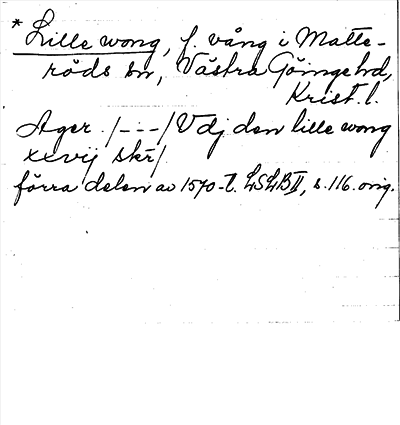 * Lille wong, f. vång i Matte-
röds sn, Västra Göinge hd,
Krist. l.
Ager /---/ Vdj den lille wong
xxvij skr/
förra delen av 1570-t. LSLB II, s. 116. orig.